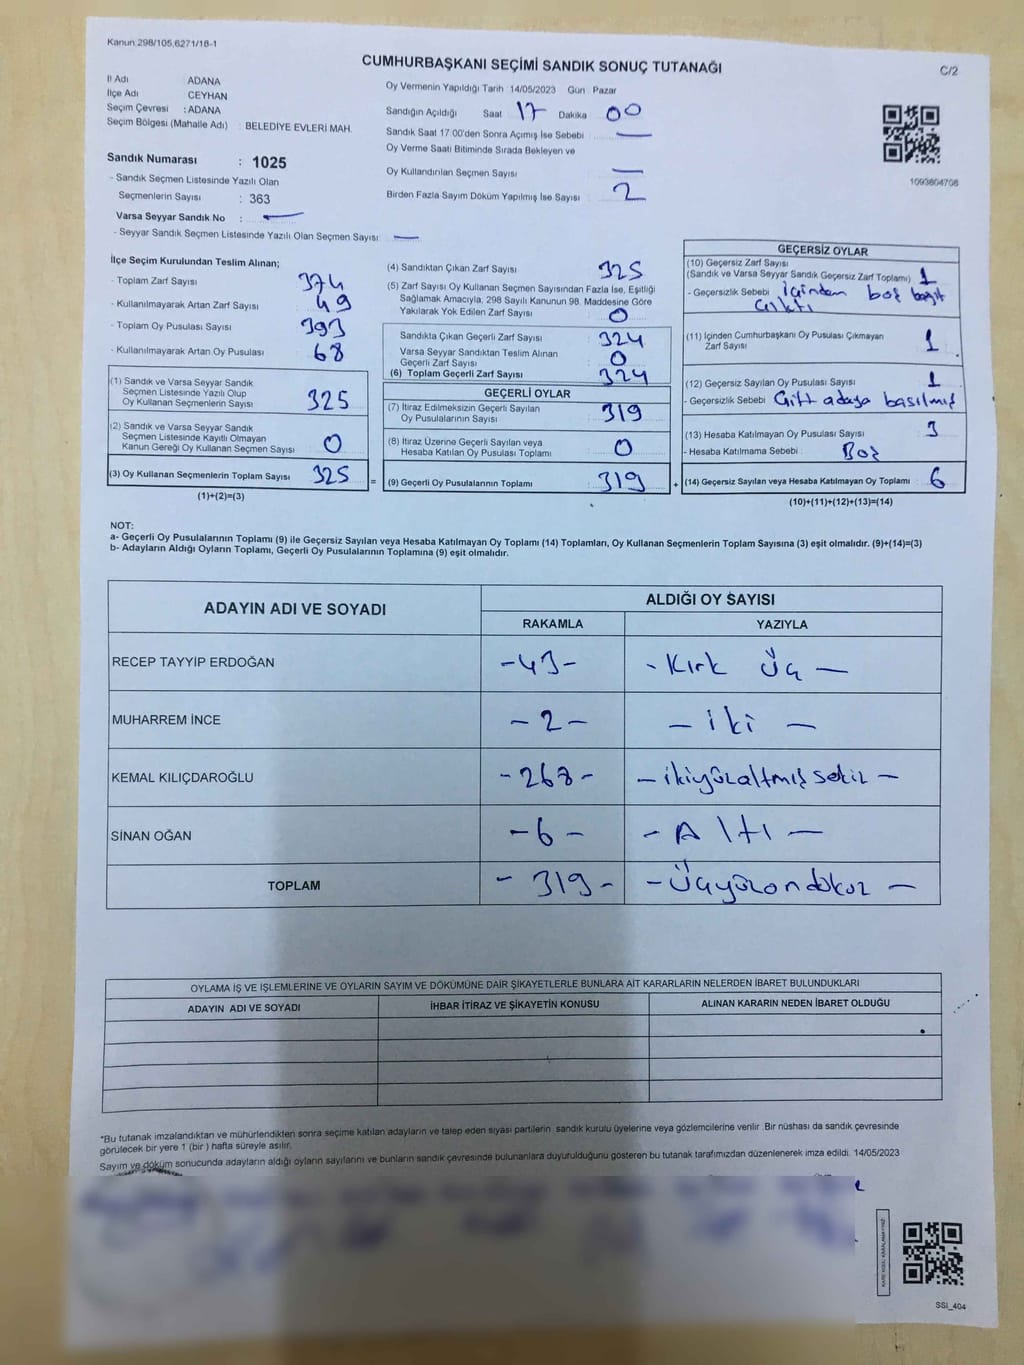 Kanun 298/105,6271/18-1
C/2
CUMHURBAŞKANI SEÇİMİ SANDIK SONUÇ TUTANAĞI
İl Adı ADANA
İlçe Adı CEYHAN
Seçim Çevresi : ADANA
Seçim Bölgesi (Mahalle Adı) : BELEDİYE EVLERİ MAH.
Oy Vermenin Yapıldığı Tarih 14/05/2023 Gün Pazar
Sandığın Açıldığı Saat 17 Dakika 00
Sandık Saat 17:00'den Sonra Açımış İse Sebebi —
Oy Verme Saati Bitiminde Sırada Bekleyen ve
Oy Kullandırılan Seçmen Sayısı —
Birden Fazla Sayım Döküm Yapılmış İse Sayısı 2
1093804708
Sandık Numarası : 1025
- Sandık Seçmen Listesinde Yazılı Olan
Seçmenlerin Sayısı : 363
Varsa Seyyar Sandık No : —
- Seyyar Sandık Seçmen Listesinde Yazılı Olan Seçmen Sayısı: —
İlçe Seçim Kurulundan Teslim Alınan;
- Toplam Zarf Sayısı 374
- Kullanılmayarak Artan Zarf Sayısı 49
- Toplam Oy Pusulası Sayısı 393
- Kullanılmayarak Artan Oy Pusulası 68
(1) Sandık ve Varsa Seyyar Sandık
Seçmen Listesinde Yazılı Olup
Oy Kullanan Seçmenlerin Sayısı 325
(2) Sandık ve Varsa Seyyar Sandık
Seçmen Listesinde Kayıtlı Olmayan
Kanun Gereği Oy Kullanan Seçmen Sayısı 0
(3) Oy Kullanan Seçmenlerin Toplam Sayısı 325
(1)+(2)=(3)
=
(4) Sandıktan Çıkan Zarf Sayısı 325
(5) Zarf Sayısı Oy Kullanan Seçmen Sayısından Fazla İse, Eşitliği
Sağlamak Amacıyla, 298 Sayılı Kanunun 98. Maddesine Göre
Yakılarak Yok Edilen Zarf Sayısı 0
Sandıkta Çıkan Geçerli Zarf Sayısı 324
Varsa Seyyar Sandıktan Teslim Alınan
Geçerli Zarf Sayısı 0
(6) Toplam Geçerli Zarf Sayısı 324
GEÇERLİ OYLAR
(7) İtiraz Edilmeksizin Geçerli Sayılan
Oy Pusulalarının Sayısı 319
(8) İtiraz Üzerine Geçerli Sayılan veya
Hesaba Katılan Oy Pusulası Toplamı 0
(9) Geçerli Oy Pusulalarının Toplamı 319
+
GEÇERSİZ OYLAR
(10) Geçersiz Zarf Sayısı
(Sandık ve Varsa Seyyar Sandık Geçersiz Zarf Toplamı) : 1
- Geçersizlik Sebebi : İçinden boş
çıktı
(11) İçinden Cumhurbaşkanı Oy Pusulası Çıkmayan
Zarf Sayısı 1
(12) Geçersiz Sayılan Oy Pusulası Sayısı 1
- Geçersizlik Sebebi Çift adaya basılmış
(13) Hesaba Katılmayan Oy Pusulası Sayısı 3
- Hesaba Katılmama Sebebi : Boş
(14) Geçersiz Sayılan veya Hesaba Katılmayan Oy Toplamı : 6
(10)+(11)+(12)+(13)=(14)
NOT:
a- Geçerli Oy Pusulalarının Toplamı (9) ile Geçersiz Sayılan veya Hesaba Katılmayan Oy Toplamı (14) Toplamları, Oy Kullanan Seçmenlerin Toplam Sayısına (3) eşit olmalıdır. (9)+(14)=(3)
b- Adayların Aldığı Oyların Toplamı, Geçerli Oy Pusulalarının Toplamına (9) eşit olmalıdır.
ADAYIN ADI VE SOYADI ALDIĞI OY SAYISI
RAKAMLA YAZIYLA
RECEP TAYYİP ERDOĞAN -43- - Kırk Üç —
MUHARREM İNCE - 2 - — iki —
KEMAL KILIÇDAROĞLU -268- — ikiyüzaltmış sekiz —
SİNAN OĞAN -6- - Altı —
TOPLAM - 319 - - Üçyüzondokuz —
OYLAMA İŞ VE İŞLEMLERİNE VE OYLARIN SAYIM VE DÖKÜMÜNE DAİR ŞİKAYETLERLE BUNLARA AİT KARARLARIN NELERDEN İBARET BULUNDUKLARI
ADAYIN ADI VE SOYADI İHBAR İTİRAZ VE ŞİKAYETİN KONUSU ALINAN KARARIN NEDEN İBARET OLDUĞU
*Bu tutanak imzalandıktan ve mühürlendikten sonra seçime katılan adayların ve talep eden siyasi partilerin sandık kurulu üyelerine veya gözlemcilerine verilir. Bir nüshası da sandık çevresinde
görülecek bir yere 1 (bir ) hafta süreyle asılır.
Sayım ve döküm sonucunda adayların aldığı oyların sayılarını ve bunların sandık çevresinde bulunanlara duyurulduğunu gösteren bu tutanak tarafımızdan düzenlenerek imza edildi. 14/05/2023
SSI_404